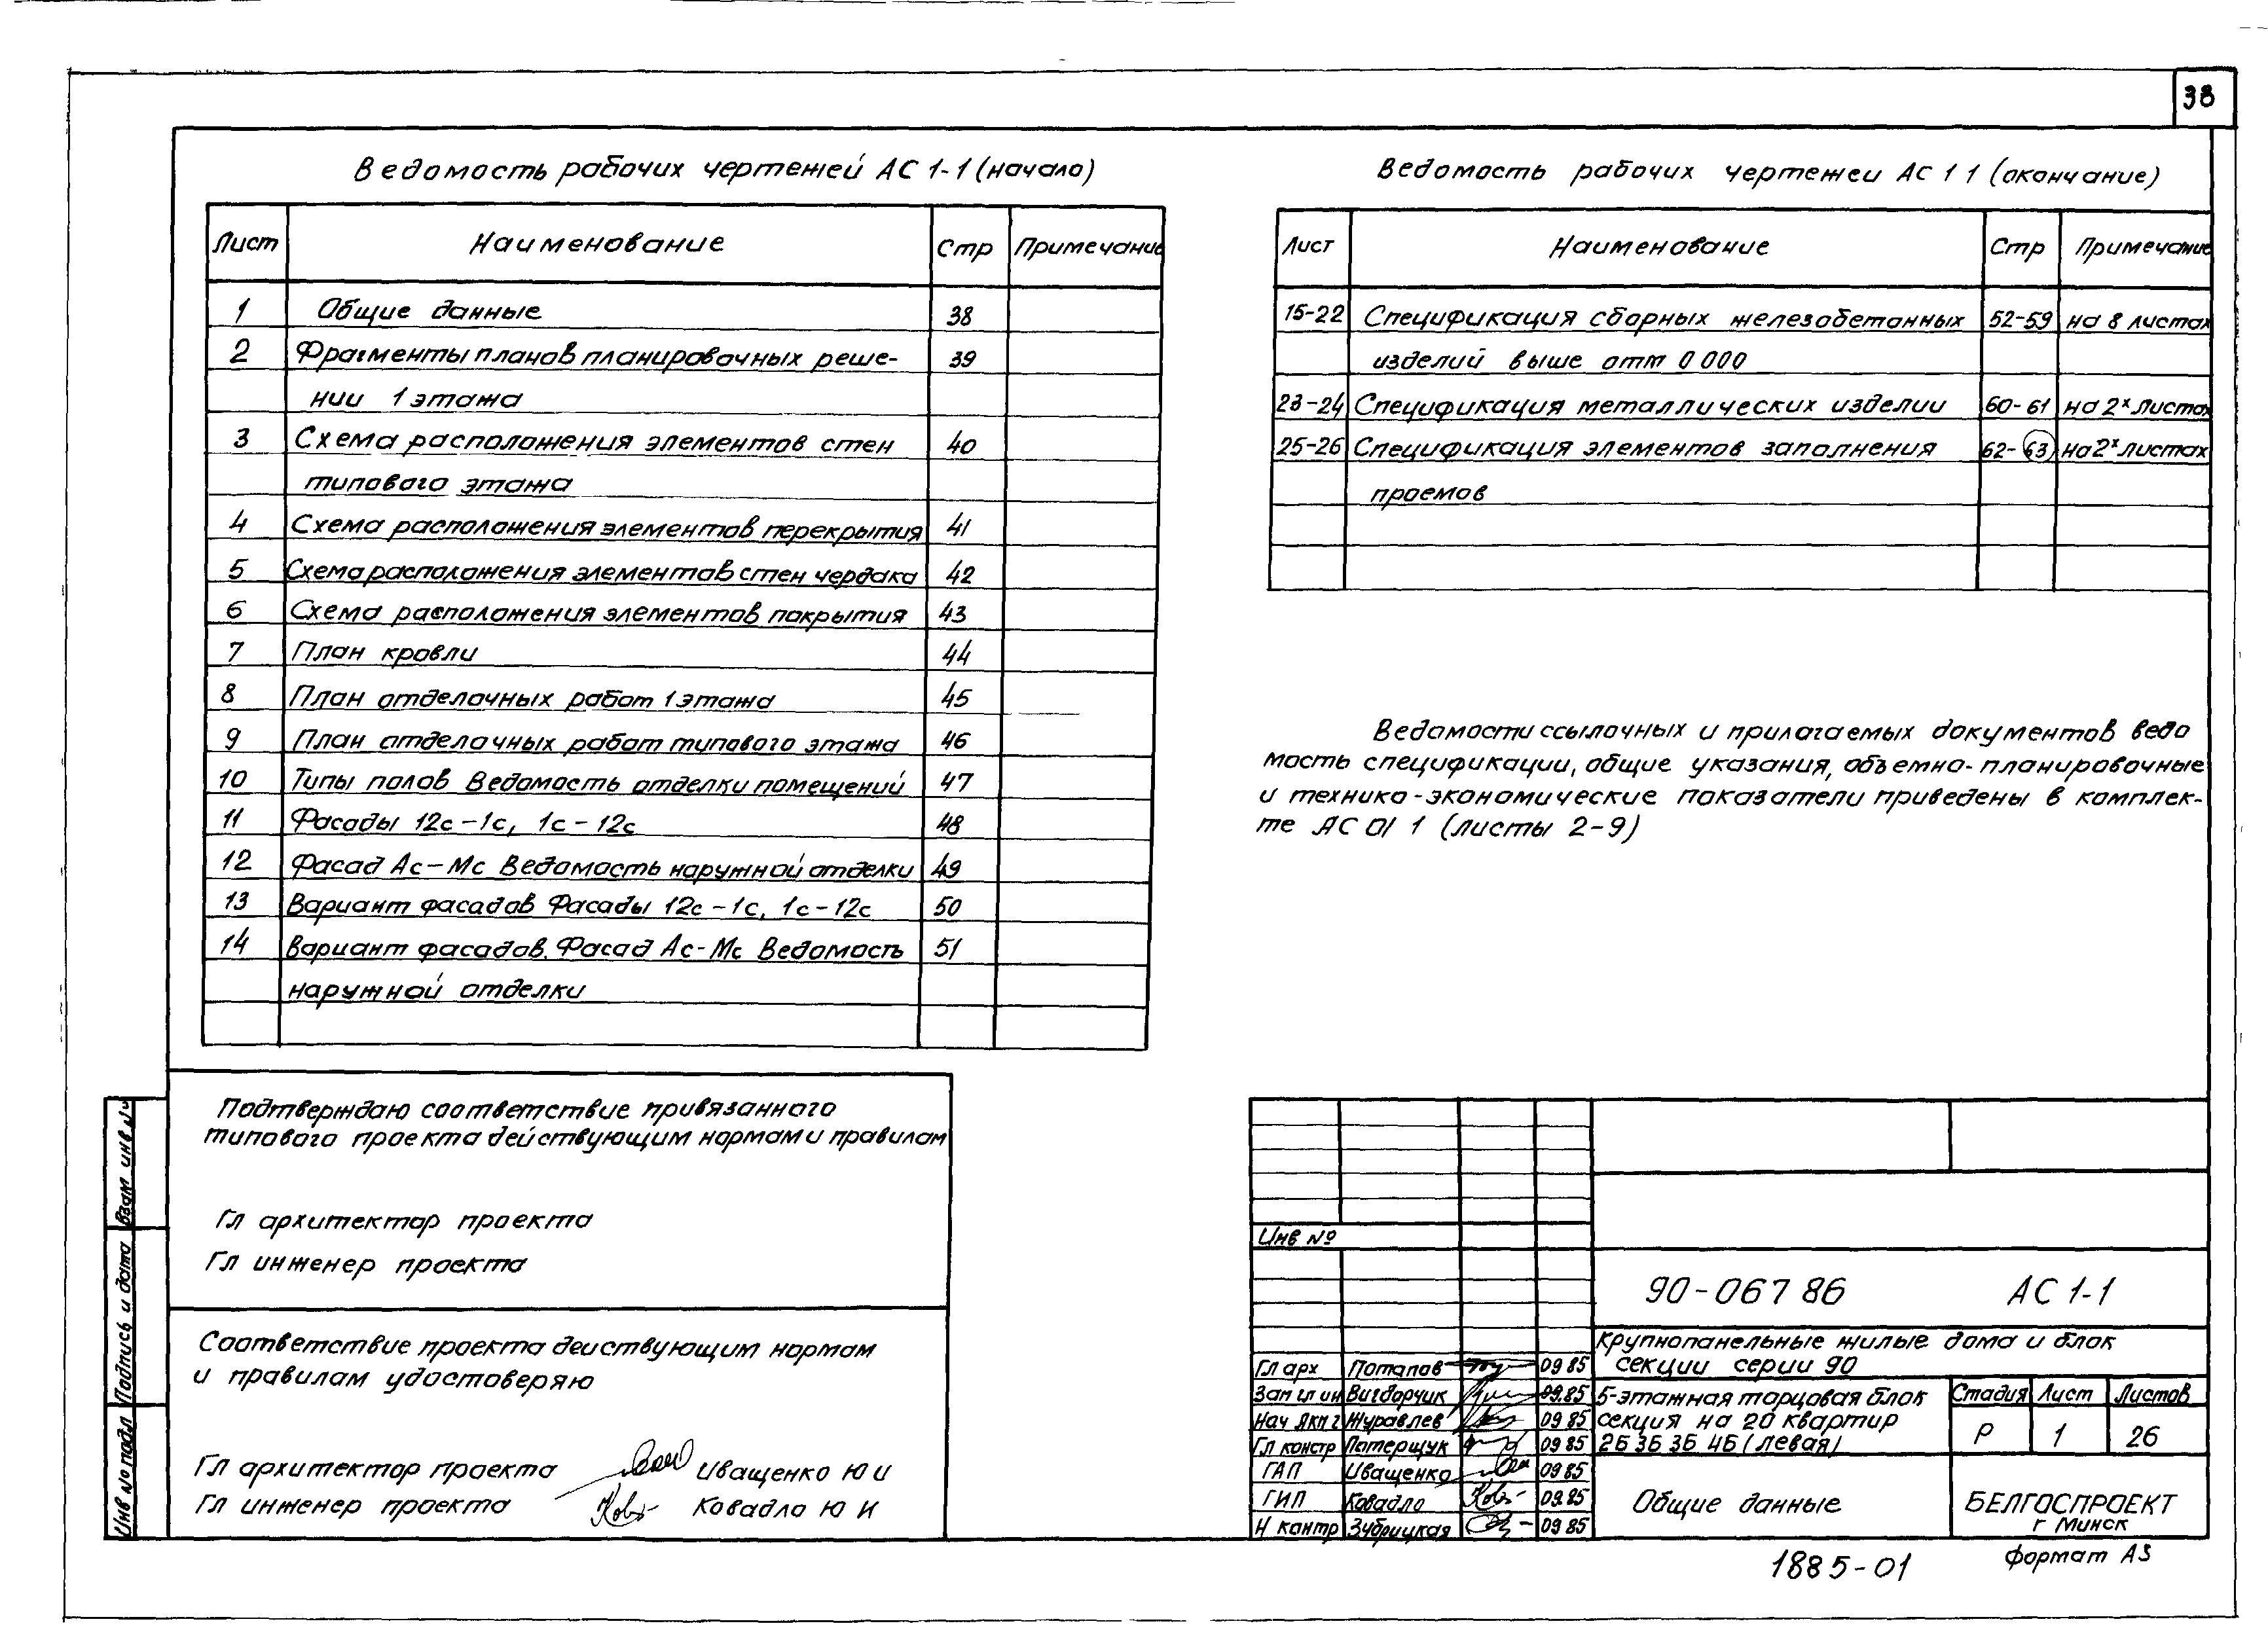 38
Ведомость рабочих чертежей АС 1-1 (начало)
Лист Наименование Стр Примечание
1 Общие данные 38
2 Фрагменты планов планировочных реше- 39
нии 1 этажа
3 Схема расположения элементов стен 40
типового этажа
4 Схема расположения элементов перекрытия 41
5 Схема расположения элементов стен чердака 42
6 Схема расположения элементов покрытия 43
7 План кровли 44
8 План отделочных работ 1 этажа 45
9 План отделочных работ типового этажа 46
10 Типы полов Ведомость отделки помещений 47
11 Фасады 12с-1с, 1с-12с 48
12 Фасад Ас-Мс Ведомость наружной отделки 49
13 Вариант фасадов Фасады 12с-1с, 1с-12с 50
14 Вариант фасадов. Фасад Ас-Мс Ведомость 51
наружной отделки
Ведомость рабочих чертежеи АС 1 1 (окончание)
Лист Наименование Стр Примечание
15-22 Спецификация сборных железобетонных 52-59 на 8 листах
изделий выше отм 0 000
23-24 Спецификация металлических изделии 60-61 на 2х листах
25-26 Спецификация элементов заполнения 62-63 на 2х листах
проемов
Ведомости ссылочных и прилагаемых документов ведо
мость спецификации, общие указания, объемно-планировочные
и технико-экономические показатели приведены в комплек-
те АС 01 1 (листы 2-9)
Подтверждаю соответствие привязанного
типового проекта действующим нормам и правилам
Гл архитектор проекта
Гл инженер проекта
Соответствие проекта деиствующим нормам
и правилам удостоверяю
Гл архитектор проекта Иващенко Ю И
Гл инженер проекта Ковадло Ю И
Взам инв №
Подпись и дата
Инв № подл
Инв №
90-067 86 АС 1-1
Крупнопанельные жилые дома и блок
секции серии 90
Гл арх Потапов 09 85
Зам гл ин Вигдорчик 09.85
Нач АКП 2 Журавлев 09 85
Гл констр Патерщук 09 85
ГАП Иващенко 09 85
ГИП Ковадло 09.85
Н контр Зубрицкая 09 85
5-этажная торцовая блок
секция на 20 квартир
2Б 3Б 3Б 4Б (левая)
Стадия Лист Листов
Р 1 26
Общие данные
БЕЛГОСПРОЕКТ
г Минск
1885-01
Формат А3